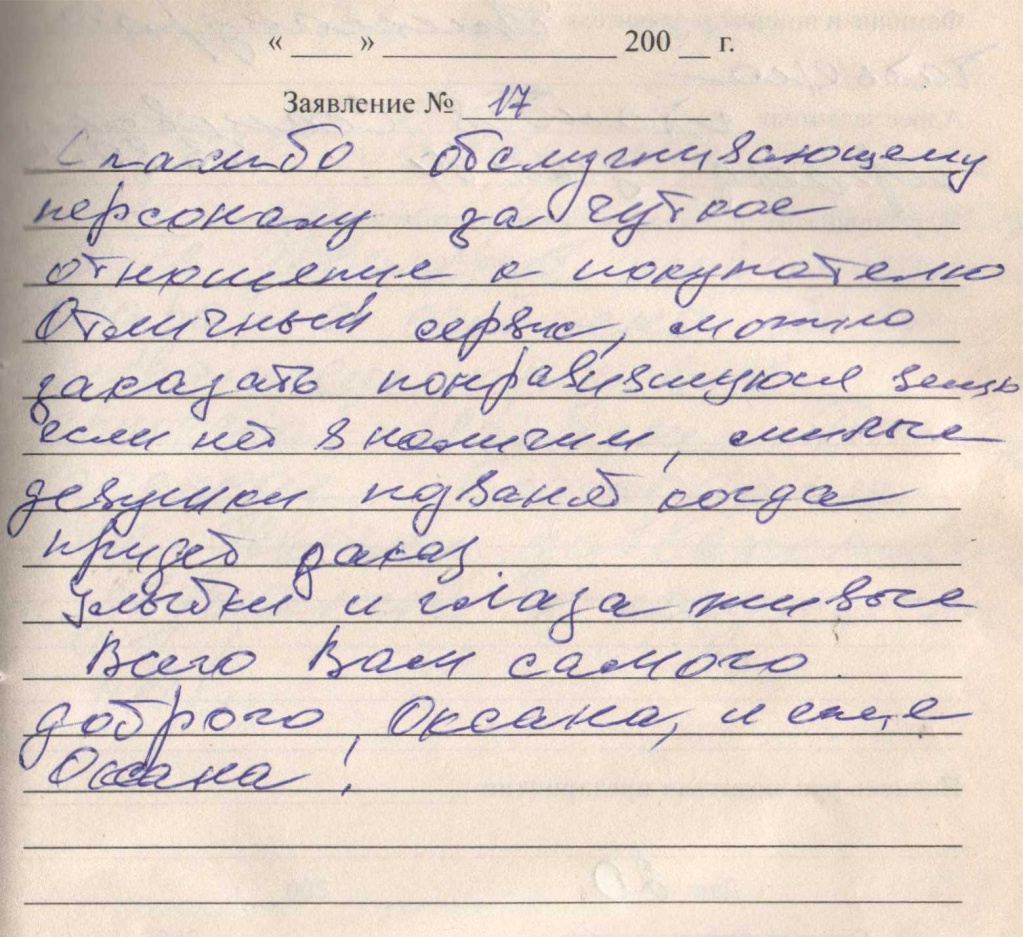 « ____ » ________________ 200 __ г.
Заявление № 17
Спасибо обслуживающему
персоналу за чуткое
отношение к покупателю
Отличный сервис, можно
заказать понравившуюся вещь
если нет в наличии, милые
девушки позванят когда
придет заказ
Улыбки и глаза живые
Всего Вам самого
доброго, Оксана, и еще
Оксана!